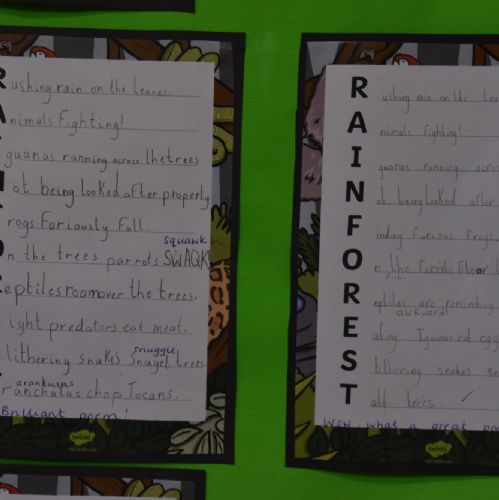 Rushing rain on the leaves.
Animals fighting!
Iguanas running across the trees
Not being looked after properly
Frogs Foriously Fall.
squawk
On the trees parrots SWAQK
Reptiles roam over the trees.
Eight predators eat meat.
snuggle
Slithering snakes snugel trees
arantulas
Tranchalas chop Tocans.
Brilliant poem!
twinkl
RAINFOREST
Rushing rain on the lea
Animals fighting!
Iguanas running acros
Not being looked after
Finding Furious Frogs.
On the Forest floor
Reptiles are reminding
awkward!
Eating Iguanas eat egg
Slithering snakes se
Tall trees
Wow, what a great poe
twinkl